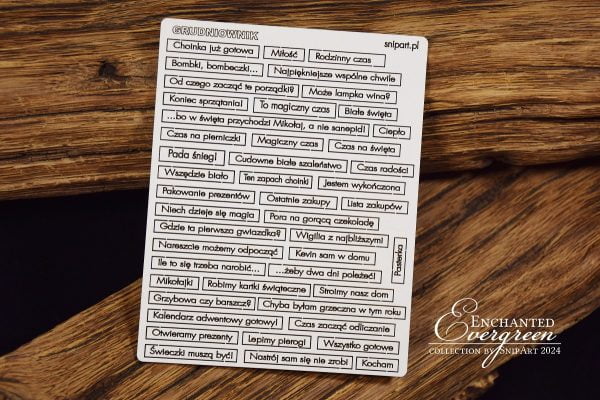 GRUDNIOWNIK
snipart.pl
Choinka już gotowa Miłość Rodzinny czas
Bombki, bombeczki... Najpiękniejsze wspólne chwile
Od czego zacząć te porządki? Może lampka wina?
Koniec sprzątania! To magiczny czas Białe święta
...bo w święta przychodzi Mikołaj, a nie sanepid! Ciepło
Czas na pierniczki Magiczny czas Czas na święta
Pada śnieg! Cudowne białe szaleństwo Czas radości
Wszędzie biało Ten zapach choinki Jestem wykończona
Pakowanie prezentów Ostatnie zakupy Lista zakupów
Niech dzieje się magia Pora na gorącą czekoladę
Gdzie ta pierwsza gwiazdka? Wigilia z najbliższymi
Nareszcie możemy odpocząć Kevin sam w domu
Pasterka
Ile to się trzeba narobić... ...żeby dwa dni poleżeć!
Mikołajki Robimy kartki świąteczne Stroimy nasz dom
Grzybowa czy barszcz? Chyba byłam grzeczna w tym roku
Kalendarz adwentowy gotowy! Czas zacząć odliczanie
Otwieramy prezenty Lepimy pierogi Wszystko gotowe
Świeczki muszą być! Nastrój sam się nie zrobi Kocham
ENCHANTED
Evergreen
COLLECTION BY SNIPART 2024